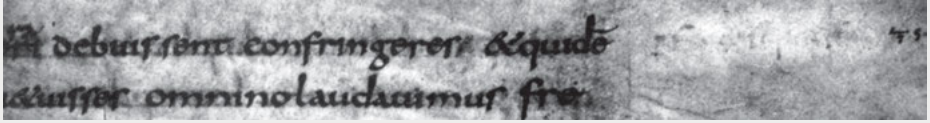 debuissent confringeres &quidē
&uisses omnino laudauimus fre